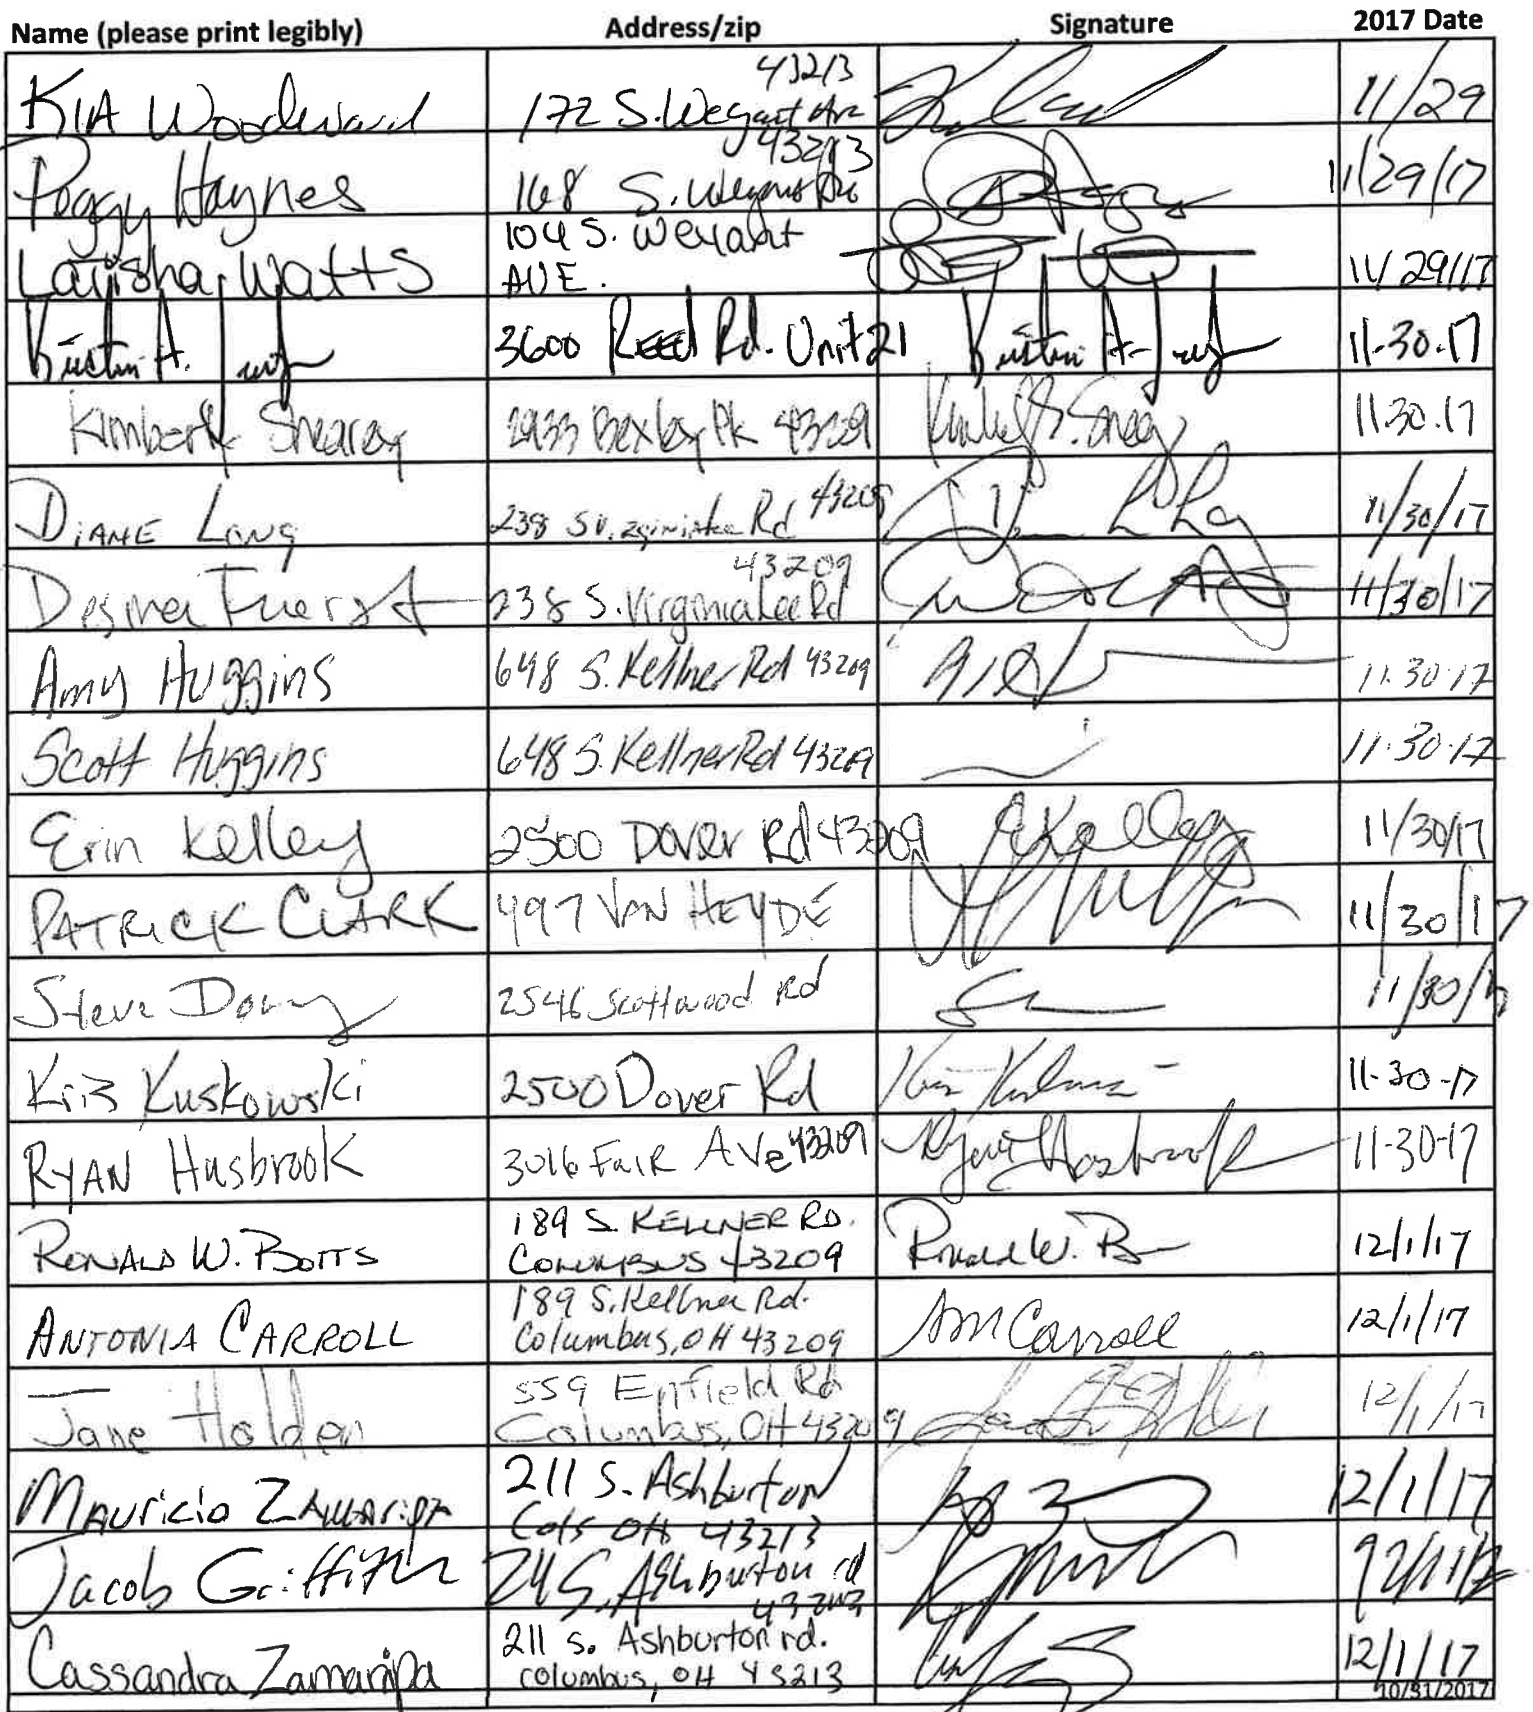 Name (please print legibly) Address/zip Signature 2017 Date
KIA Woodward 172 S. Weyant Ave 43213 11/29
Peggy Haynes 168 S. Weyant Ave 43213 11/29/17
Latisha Watts 104 S. Weyant AVE. 11/29/17
Kristin A. 3600 Reed Rd. Unit 21 Kristin A. 11-30-17
Kimberly Shearer 2933 Bexley Pk 43209 11.30.17
DIANE LONG 238 S Virginia Lee Rd 43209 11/30/17
Desiree Fuerst 238 S. Virginia Lee Rd 43209 11/30/17
Amy Huggins 648 S. Kellner Rd 43209 11.30.17
Scott Huggins 648 S. Kellner Rd 43209 11.30.17
Erin Kelley 2500 Dover Rd 43209 EKelley 11/30/17
PATRICK CLARK 497 VAN HEYDE 11/30/17
Steve 2546 Scottwood Rd 11/30/17
Kris Kuskowski 2500 Dover Rd 11-30-17
RYAN Hasbrook 3016 FAIR AVe 43209 Ryan Hasbrook 11-30-17
RONALD W. BOTTS 189 S. KELLNER RD.
COLUMBUS 43209 Ronald W. B 12/1/17
ANTONIA CARROLL 189 S. Kellner Rd.
Columbus, OH 43209 AM Carroll 12/1/17
Jane Holden 559 Enfield Rd
Columbus, OH 43209 12/1/17
Mauricio Zamaripa 211 S. Ashburton
Cols OH 43213 12/1/17
Jacob Griffith 211 S. Ashburton rd
43213 12/1/17
Cassandra Zamaripa 211 S. Ashburton rd.
columbus, OH 43213 12/1/17
10/31/2017